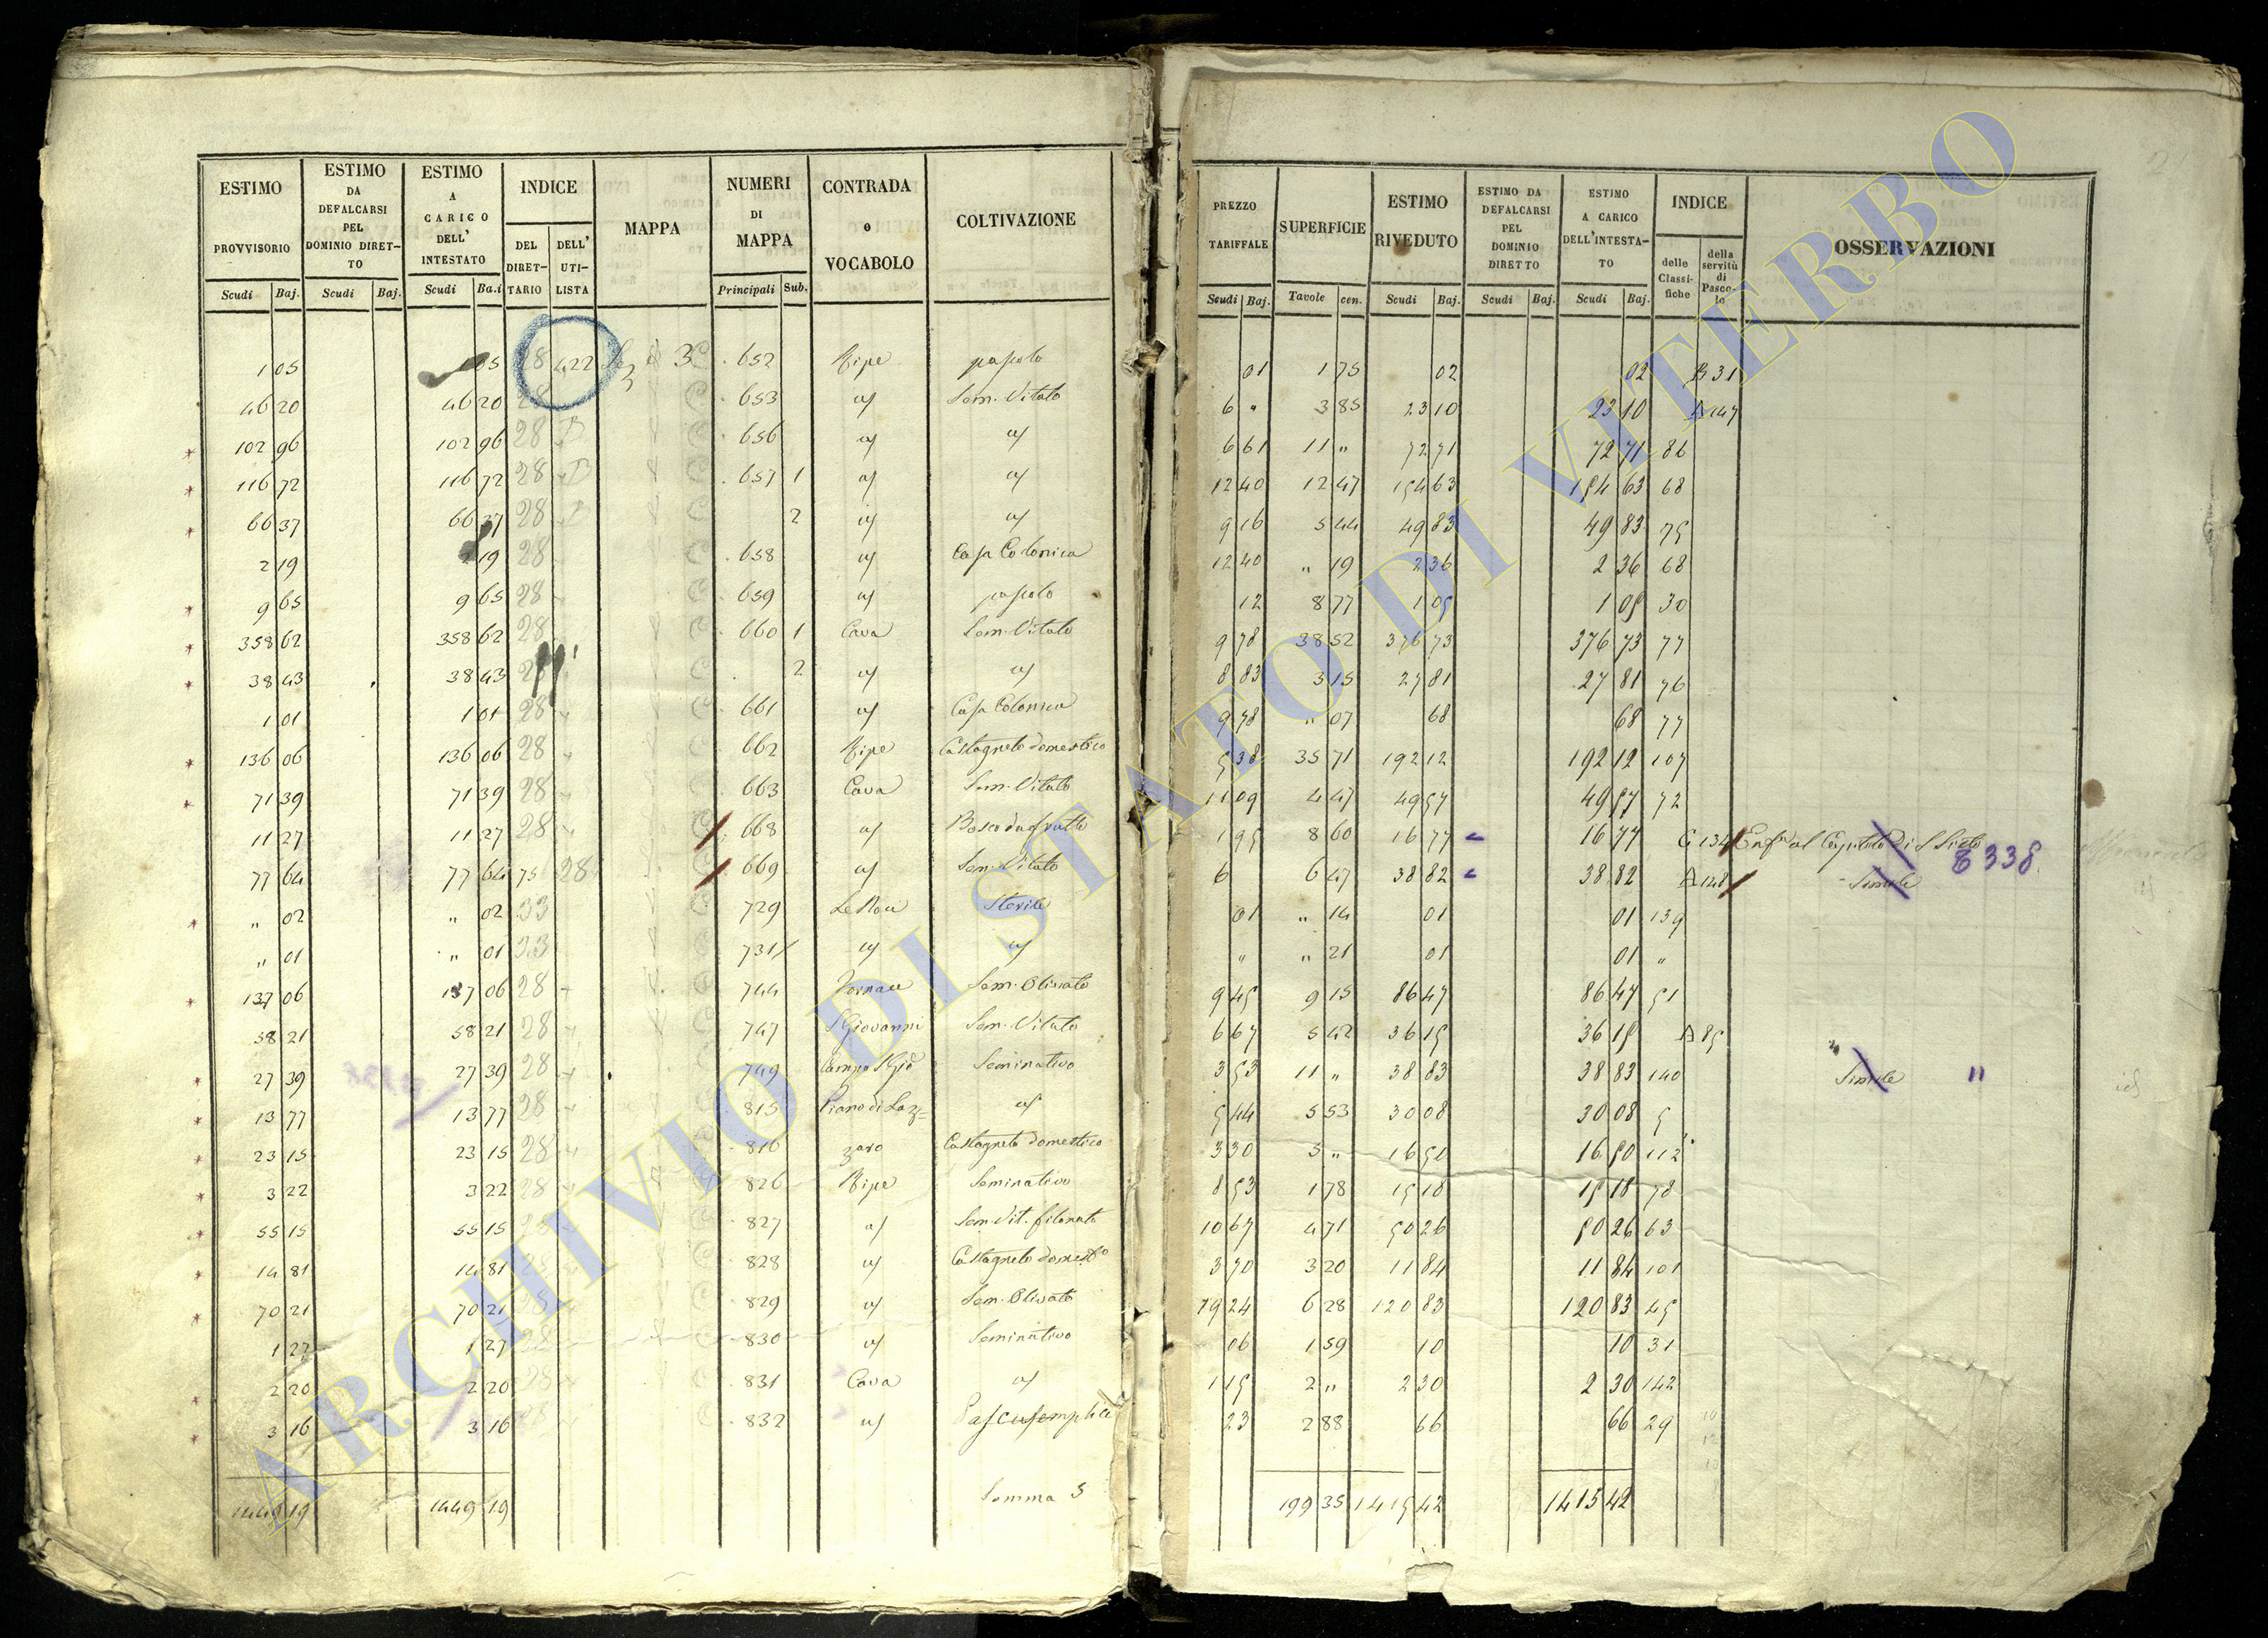 ESTIMO PROVVISORIO | ESTIMO DA DEFALCARSI PEL DOMINIO DIRET-TO | ESTIMO A CARICO DELL' INTESTATO | INDICE | MAPPA | NUMERI DI MAPPA | CONTRADA o VOCABOLO | COLTIVAZIONE
DEL DIRET-TARIO | DELL' UTI-LISTA
Scudi | Baj. | Scudi | Baj. | Scudi | Ba.i | Principali | Sub.
1 05 | 05 | 28 | 422 | 3 | 652 | Ripe | pascolo
46 20 | 46 20 | 28 | 653 | id | Sem. Vitato
102 96 | 102 96 | 28 | 656 | id | id
116 72 | 116 72 | 28 | 657 | 1 | id | id
66 37 | 66 37 | 28 | 2 | id | id
2 19 | 19 | 28 | 658 | id | Casa Colonica
9 65 | 9 65 | 28 | 659 | id | pascolo
358 62 | 358 62 | 28 | 660 | 1 | Cava | Sem. Vitato
38 43 | 38 43 | 28 | 2 | id | id
1 01 | 1 01 | 28 | 661 | id | Casa Colonica
136 06 | 136 06 | 28 | 662 | Ripe | Castagneto domestico
71 39 | 71 39 | 28 | 663 | Cava | Sem. Vitato
11 27 | 11 27 | 28 | 668 | id | Bosco da frutto
77 64 | 77 64 | 75 | 28 | 669 | id | Sem. Vitato
" 02 | " 02 | 33 | 729 | Sterile
" 01 | " 01 | 33 | 731 | id | id
137 06 | 137 06 | 28 | 744 | Sem. Olivato
58 21 | 58 21 | 28 | 747 | S Giovanni | Sem. Vitato
27 39 | 27 39 | 28 | 749 | Campo S Gio | Seminativo
13 77 | 13 77 | 28 | 815 | Piano di Laz= | id
23 15 | 23 15 | 28 | 816 | zaro | Castagneto domestico
3 22 | 3 22 | 28 | 826 | Ripe | Seminativo
55 15 | 55 15 | 28 | 827 | id | Sem. Vit. filonato
14 81 | 14 81 | 28 | 828 | id | Castagneto domestº
70 21 | 70 21 | 28 | 829 | id | Sem. Olivato
1 27 | 1 27 | 28 | 830 | id | Seminativo
2 20 | 2 20 | 28 | 831 | Cava | id
3 16 | 3 16 | 28 | 832 | id | Pasc. semplice
1449 19 | 1449 19 | Somma 5
PREZZO TARIFFALE | SUPERFICIE | ESTIMO RIVEDUTO | ESTIMO DA DEFALCARSI PEL DOMINIO DIRETTO | ESTIMO A CARICO DELL'INTESTA-TO | INDICE | OSSERVAZIONI
delle Classi-fiche | della servitù di Pasco-lo
Scudi | Baj. | Tavole | cen. | Scudi | Baj. | Scudi | Baj. | Scudi | Baj.
01 | 1 75 | 02 | 02 | B 31
6 " | 3 85 | 23 10 | 23 10 | A 147
6 61 | 11 " | 72 71 | 72 71 | 86
12 40 | 12 47 | 154 63 | 154 63 | 68
9 16 | 5 44 | 49 83 | 49 83 | 75
12 40 | " 19 | 2 36 | 2 36 | 68
12 | 8 77 | 1 05 | 1 05 | 30
9 78 | 38 52 | 376 73 | 376 73 | 77
8 83 | 3 15 | 27 81 | 27 81 | 76
9 78 | " 07 | 68 | 68 | 77
5 38 | 35 71 | 192 12 | 192 12 | 107
11 09 | 4 47 | 49 57 | 49 57 | 72
1 95 | 8 60 | 16 77 | 16 77 | C 134 | al Capitolo di S Sisto
6 | 6 47 | 38 82 | 38 82 | A 148 | Simile | 338
01 | " 14 | 01 | 01 | 139
" | " 21 | 01 | 01 | "
9 45 | 9 15 | 86 47 | 86 47 | 51
6 67 | 5 42 | 36 15 | 36 15 | A 85
3 53 | 11 " | 38 83 | 38 83 | 140 | Simile | "
5 44 | 5 53 | 30 08 | 30 08 | 5
3 30 | 5 " | 16 50 | 16 50 | 112
8 53 | 1 78 | 15 18 | 15 18 | 78
10 67 | 4 71 | 50 26 | 50 26 | 63
3 70 | 3 20 | 11 84 | 11 84 | 101
19 24 | 6 28 | 120 83 | 120 83 | 45
06 | 1 59 | 10 | 10 | 31
1 15 | 2 " | 2 30 | 2 30 | 142
23 | 2 88 | 66 | 66 | 29
199 35 | 1415 42 | 1415 42
ARCHIVIO DI STATO DI VITERBO